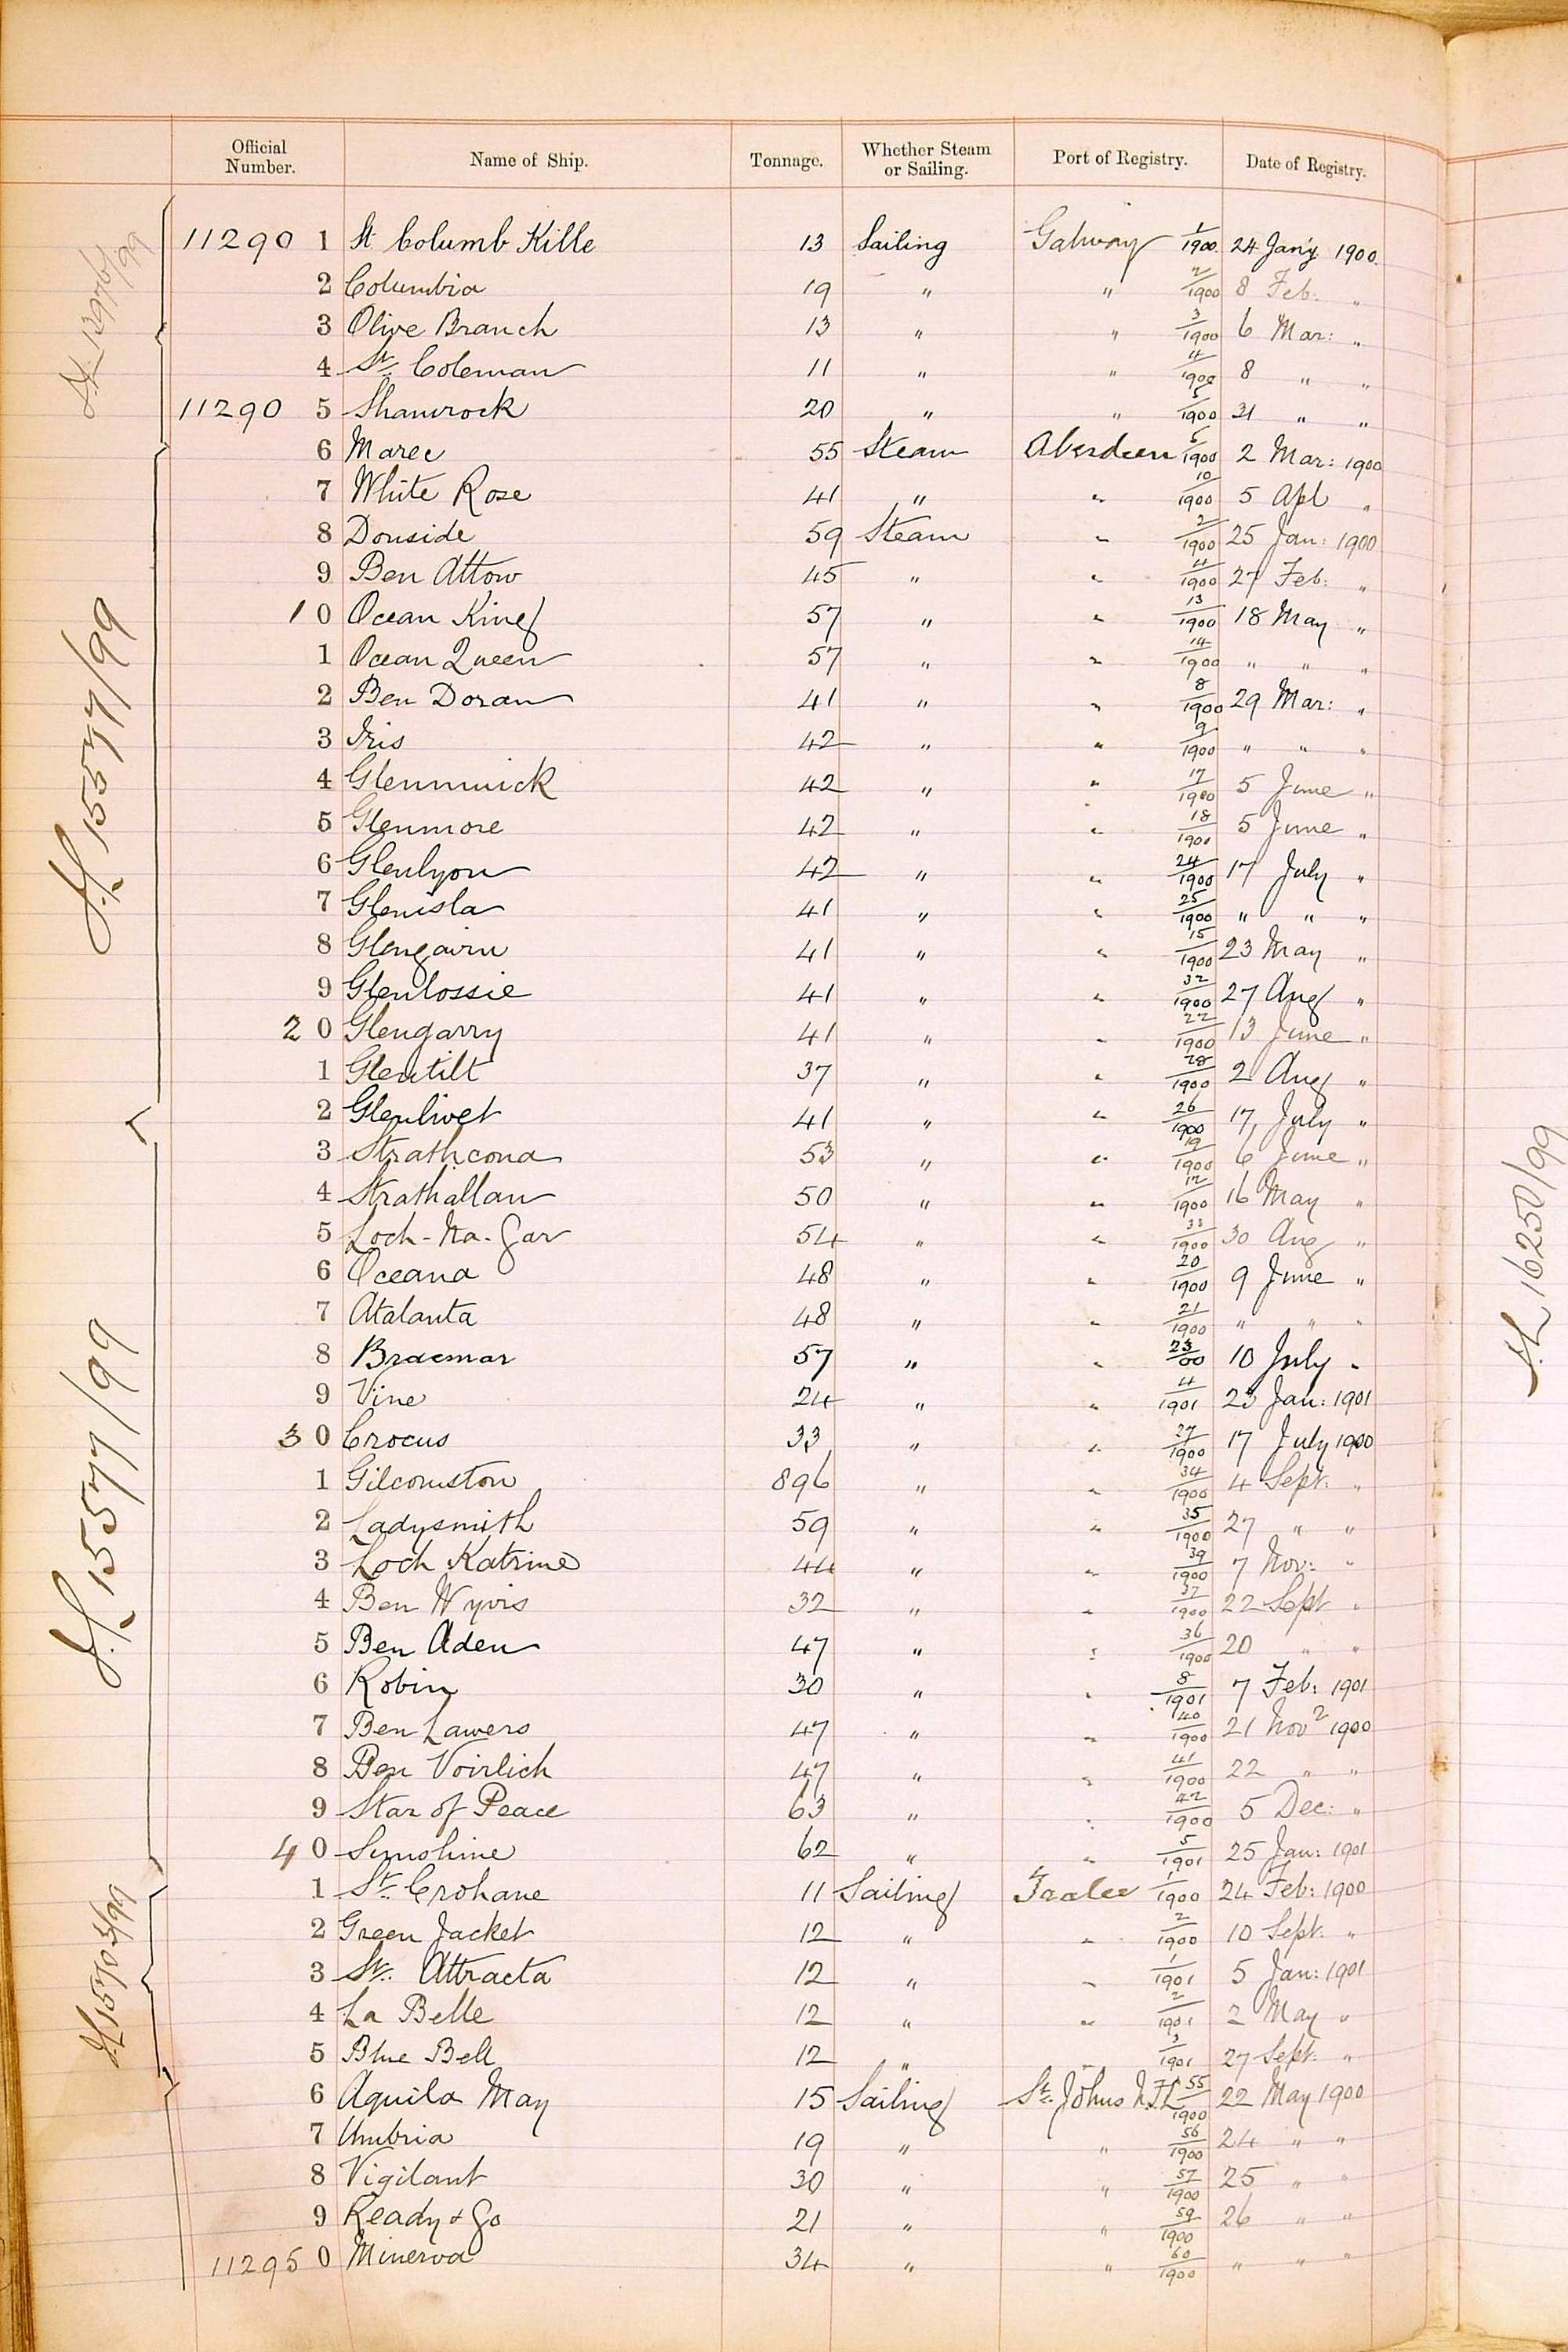 Official Number. Name of Ship. Tonnage. Whether Steam or Sailing. Port of Registry. Date of Registry.
11290 1 St Columb Kille 13 Sailing Galway 1/1900 24 Jan'y 1900.
2 Columbia 19 " " 2/1900 8 Feb: "
3 Olive Branch 13 " " 3/1900 6 Mar: "
4 St. Coleman 11 " " 4/1900 8 " "
11290 5 Shamrock 20 " " 5/1900 31 " "
6 Maree 55 Steam Aberdeen 1900 2 Mar: 1900
7 White Rose 41 " " 10/1900 5 Apl "
8 Donside 59 Steam " 2/1900 25 Jan: 1900
9 Ben Attow 45 " " 4/1900 27 Feb: "
10 Ocean King 57 " " 13/1900 18 May "
1 Ocean Queen 57 " " 14/1900 " " "
2 Ben Doran 41 " " 8/1900 29 Mar: "
3 Iris 42 " " 9/1900 " " "
4 Glenmuick 42 " " 17/1900 5 June "
5 Glenmore 42 " " 18/1900 5 June "
6 Glenlyon 42 " " 24/1900 17 July "
7 Glenisla 41 " " 25/1900 " " "
8 Glengairn 41 " " 15/1900 23 May "
9 Glenlossie 41 " " 32/1900 27 Aug "
20 Glengarry 41 " " 22/1900 13 June "
1 Glentilt 37 " " 28/1900 2 Aug "
2 Glenlivet 41 " " 26/1900 17 July "
3 Strathcona 53 " " 19/1900 6 June "
4 Strathallan 50 " " 12/1900 16 May "
5 Loch-Na-Gar 54 " " 33/1900 30 Aug "
6 Oceana 48 " " 20/1900 9 June "
7 Atalanta 48 " " 21/1900 " " "
8 Braemar 57 " " 23/00 10 July "
9 Vine 24 " " 4/1901 23 Jan: 1901
30 Crocus 33 " " 27/1900 17 July 1900
1 Gilcomston 896 " " 34/1900 4 Sept: "
2 Ladysmith 59 " " 35/1900 27 " "
3 Loch Katrine 44 " " 39/1900 7 Nov: "
4 Ben Wyvis 32 " " 37/1900 22 Sept "
5 Ben Aden 47 " " 36/1900 20 " "
6 Robin 30 " " 8/1901 7 Feb: 1901
7 Ben Lawers 47 " " 40/1900 21 Nov 1900
8 Ben Voirlich 47 " " 41/1900 22 " "
9 Star of Peace 63 " " 42/1900 5 Dec: "
40 Sunshine 62 " " 5/1901 25 Jan: 1901
1 St. Crohane 11 Sailing Tralee 1/1900 24 Feb: 1900
2 Green Jacket 12 " " 2/1900 10 Sept: "
3 St. Attracta 12 " " 1/1901 5 Jan: 1901
4 La Belle 12 " " 2/1901 2 May "
5 Blue Bell 12 " " 3/1901 27 Sept: "
6 Aquila May 15 Sailing St. Johns N.F.L 55/1900 22 May 1900
7 Umbria 19 " " 56/1900 24 " "
8 Vigilant 30 " " 57/1900 25 " "
9 Ready & Go 21 " " 59/1900 26 " "
11295 0 Minerva 34 " " 60/1900 " " "
15577/99
15577/99
16250/99